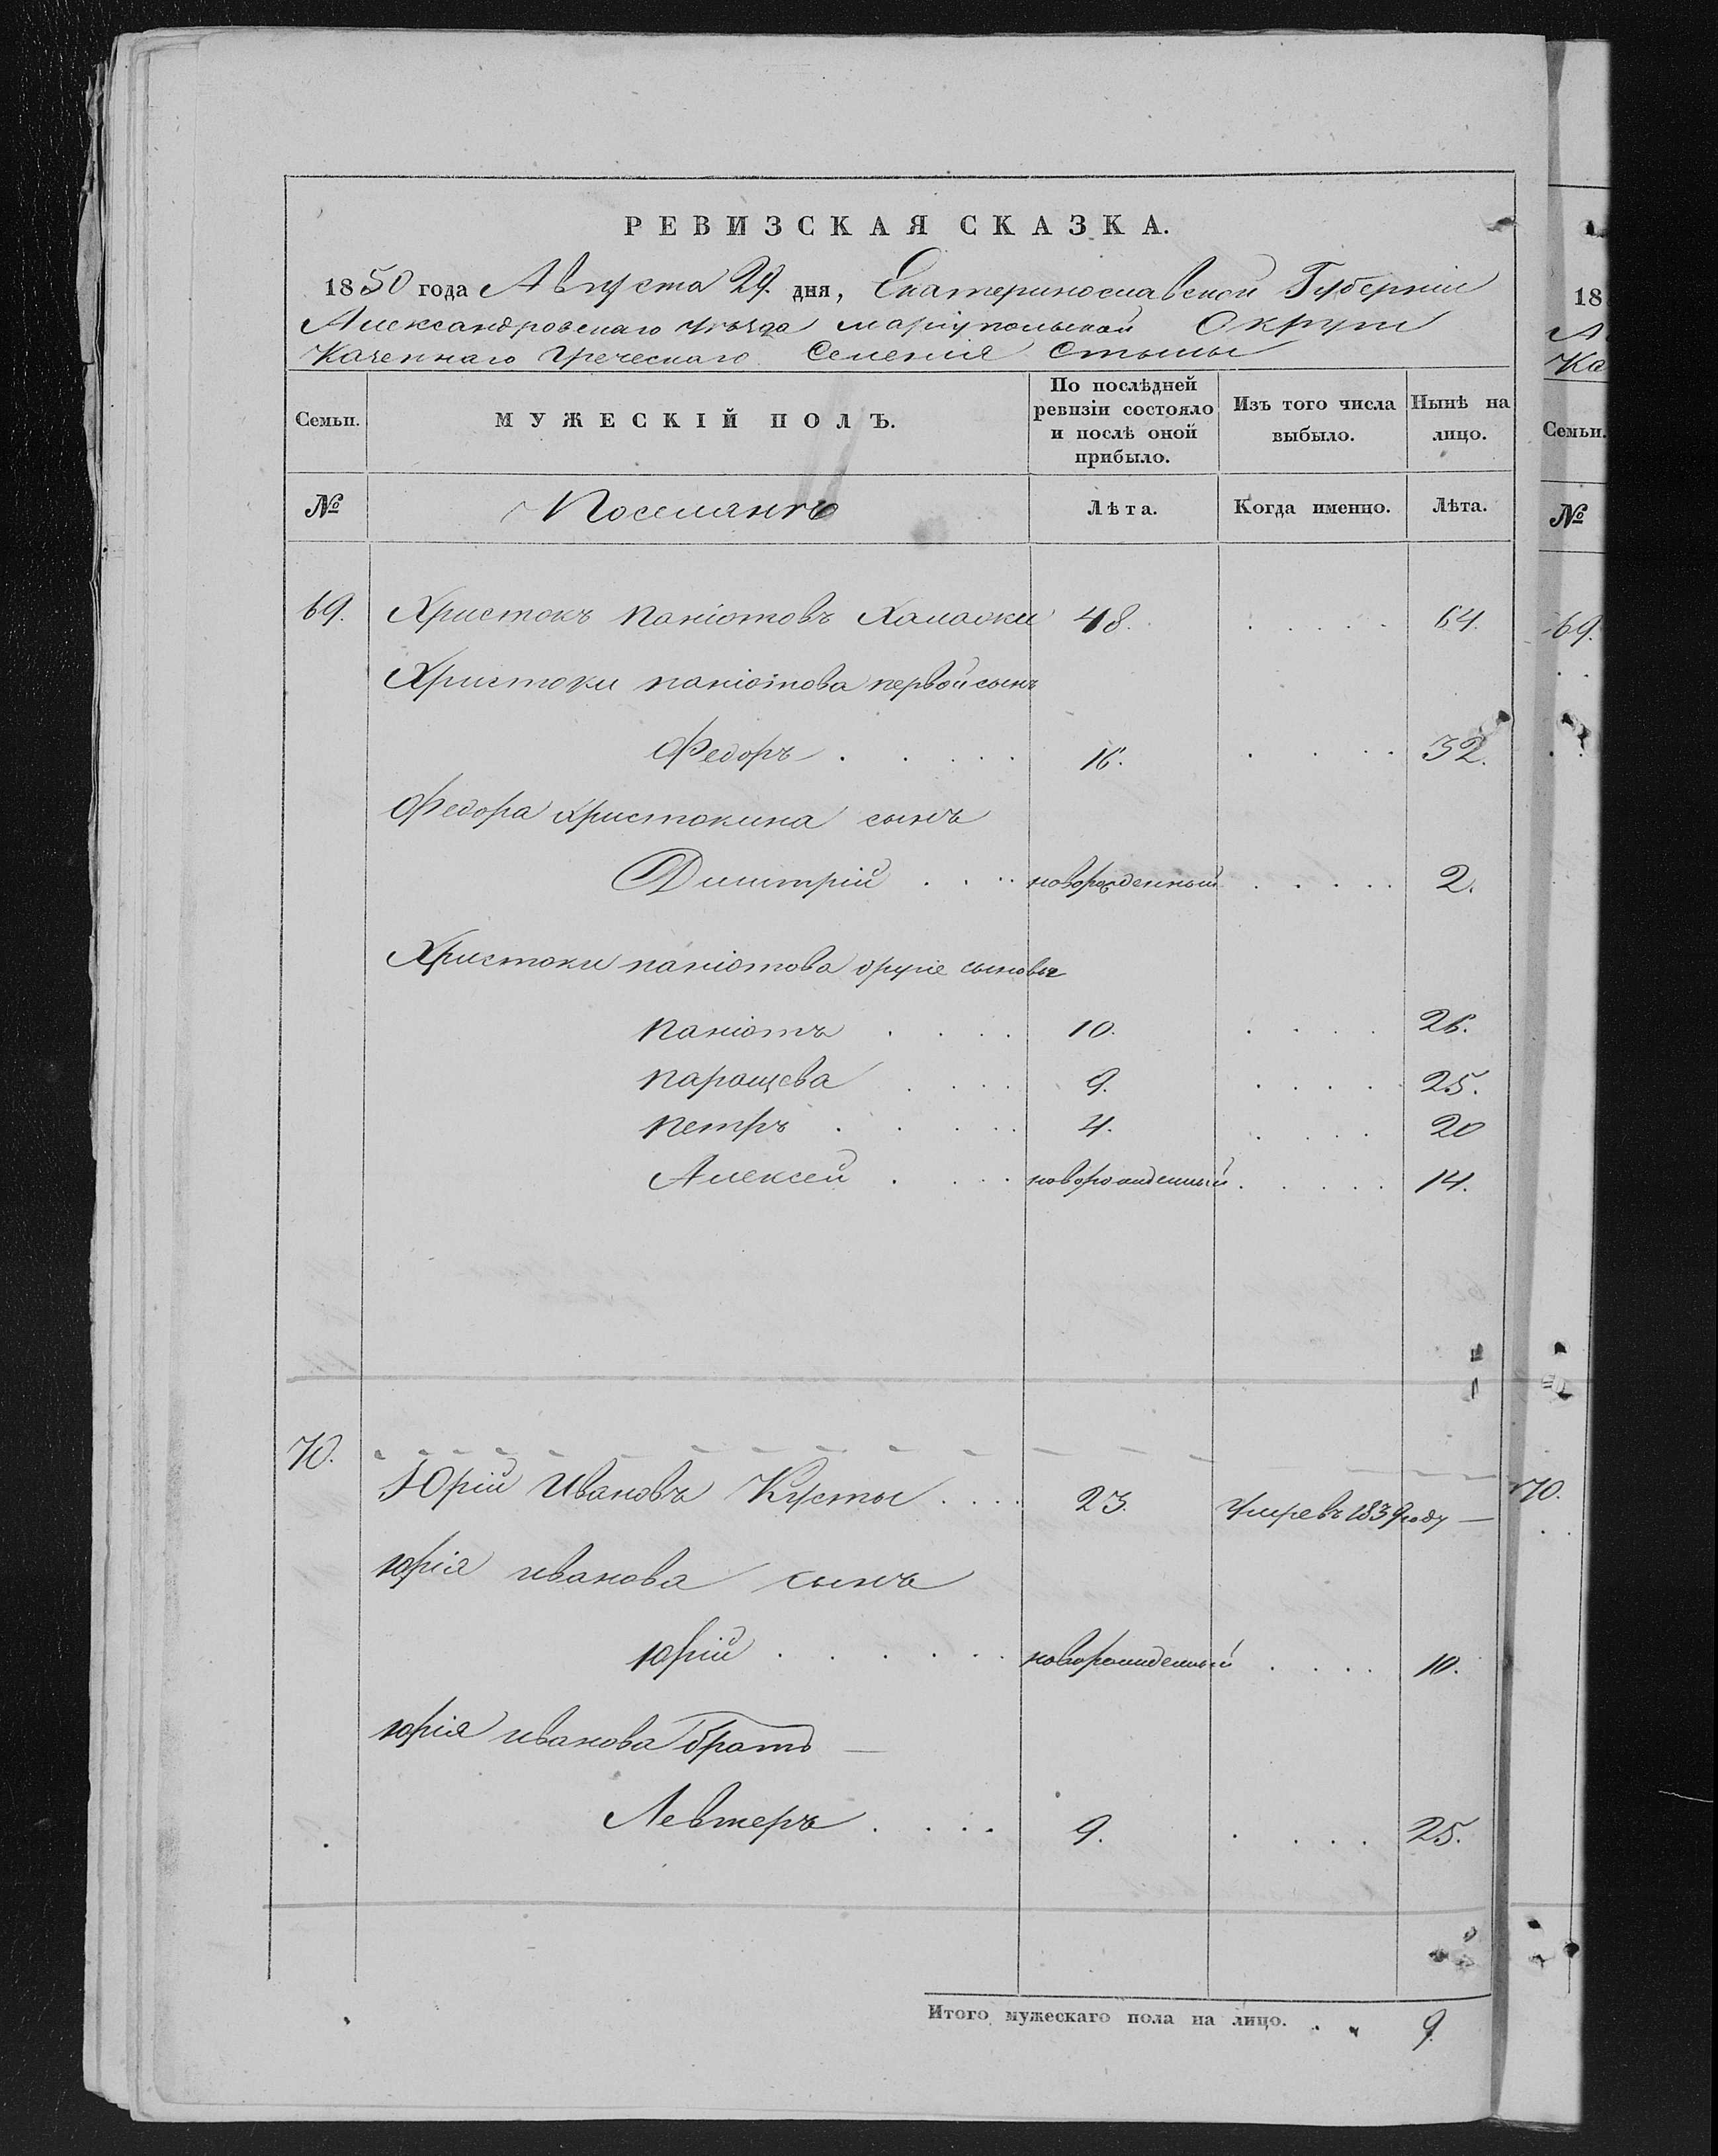 РЕВИЗСКАЯ СКАЗКА.
1850 года Августа 29. дня, Екатеринославской Губерніи
Александровскаго уѣзда маріупольской Округи
Казеннаго Греческаго Селенія Стылы
Семьи. МУЖЕСКІЙ ПОЛЪ. По послѣдней ревизіи состояло и послѣ оной прибыло. Изъ того числа выбыло. Нынѣ на лицо.
№ Поселянъ Лѣта. Когда именно. Лѣта.
69. Христокъ Паніотовъ 48. . . . . . 64.
Христоки паніотова первой сынъ
Федоръ . . . . . 16. . . . . 32.
Федора Христокина сынъ
Димитрій . . . новорожденный . . . . . 2.
Христоки паніотова другіе сыновья
Паніотъ . . . . 10. . . . . 26.
Паращева . . . . 9. . . . . . 25.
Петръ . . . . . 4. . . . . 20
Алексей . . . новорожденный . . . . . 14.
70. Юрій Ивановъ Кусты . . . . 23. Умре въ 1839 году —
юрія иванова сынъ
юрій . . . . . . новорожденный . . . . 10.
юрія иванова братъ —
Левтеръ . . . . 9. . . . . 25.
Итого мужескаго пола на лицо. . . 9.
18
А
Ка
Семьи.
№
69.
70.